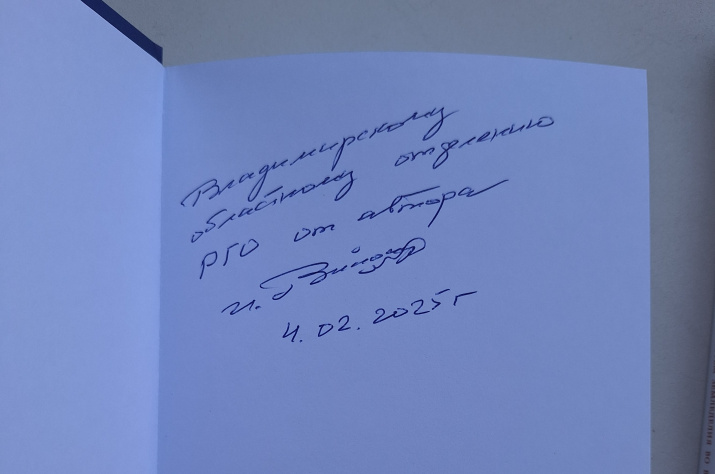 Владимирскому
областному отделению
РГО от автора
И.
4.02.2025г